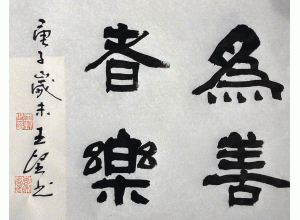 為善
者樂
庚子歲末王漢書